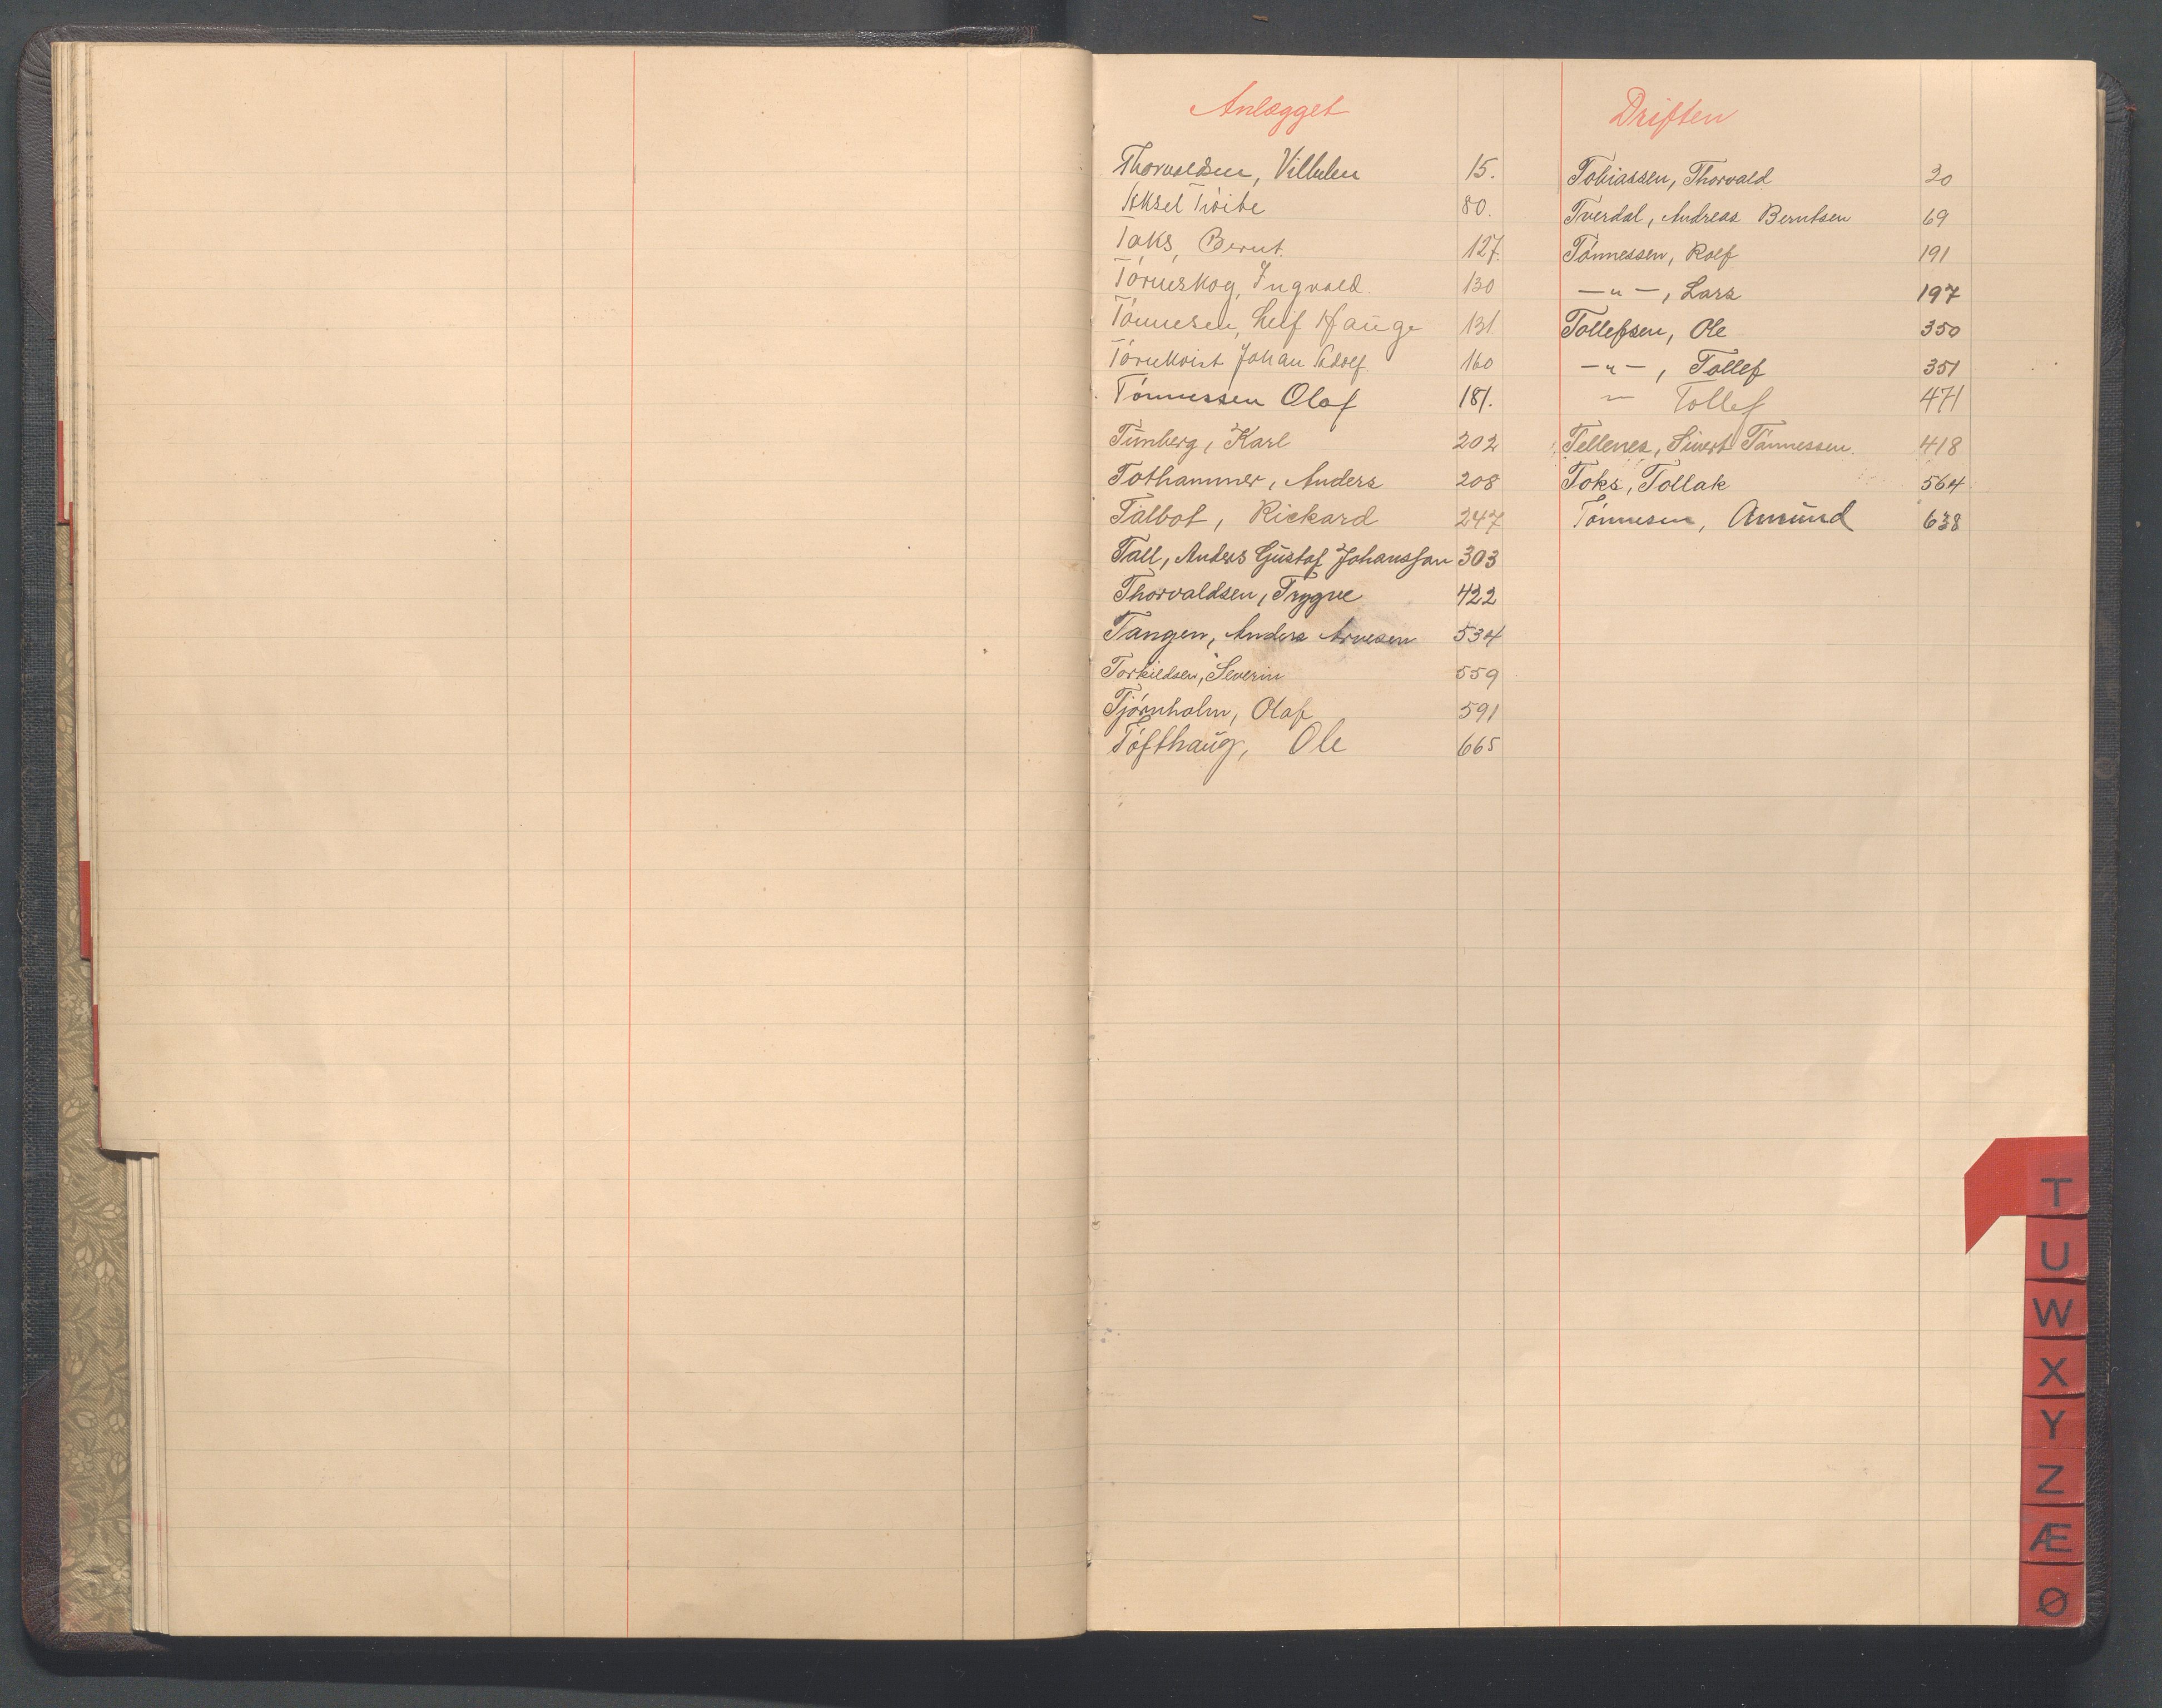 Anlægget
Thorvaldsen, Vilhelm 15.
Aksel Tvôite 80.
Toks, Bernt. 127.
Törneskog, Ingvald. 130
Tönnesen, Leif Hauge 131
Törnkvist Johan Adolf 160
Tónnessen Olaf 181.
Tŭnberg, Karl 202
Tothammer, Anders 208
Talbot, Rickard 247
Tall, Anders Gŭstaf Johansson 303
Thorvaldsen, Trygve 422
Tangen, Anders Arnesen 534
Torkildsen, Severin 559
Tjórnholm, Olaf 591
Tófthaŭg, Ole 665
Driften
Tobiassen, Thorvald 30
Tverdal, Andreas Berntsen 69
Tónnessen, Rolf 191
—"—, Lars 197
Tollefsen, Ole 350
—"—, Tollef 351
— Tollef 471
Tellenes, Sivert Tónnessen. 418
Toks, Tollak 564
Tónnesen, Amŭnd 638
T
U
W
X
Y
Z
Æ
Ø